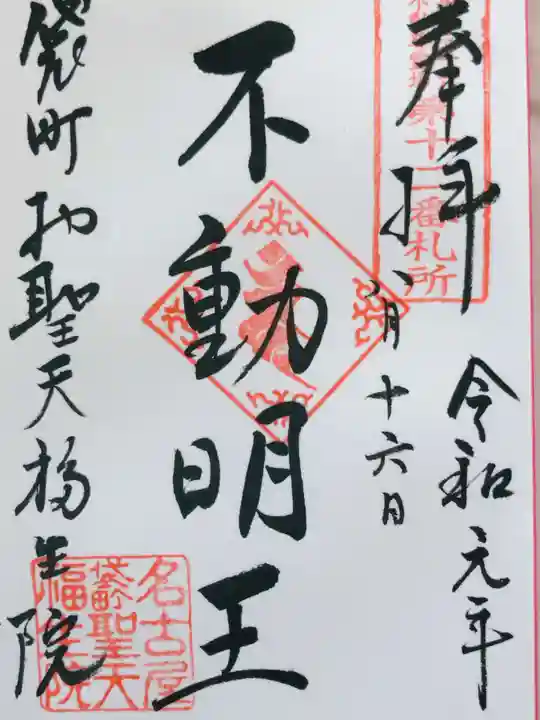 奉拝
令和元年
八月十六日
第十二番札所
不動明王
袋町お聖天福生院
名古屋
袋町聖天
福生院